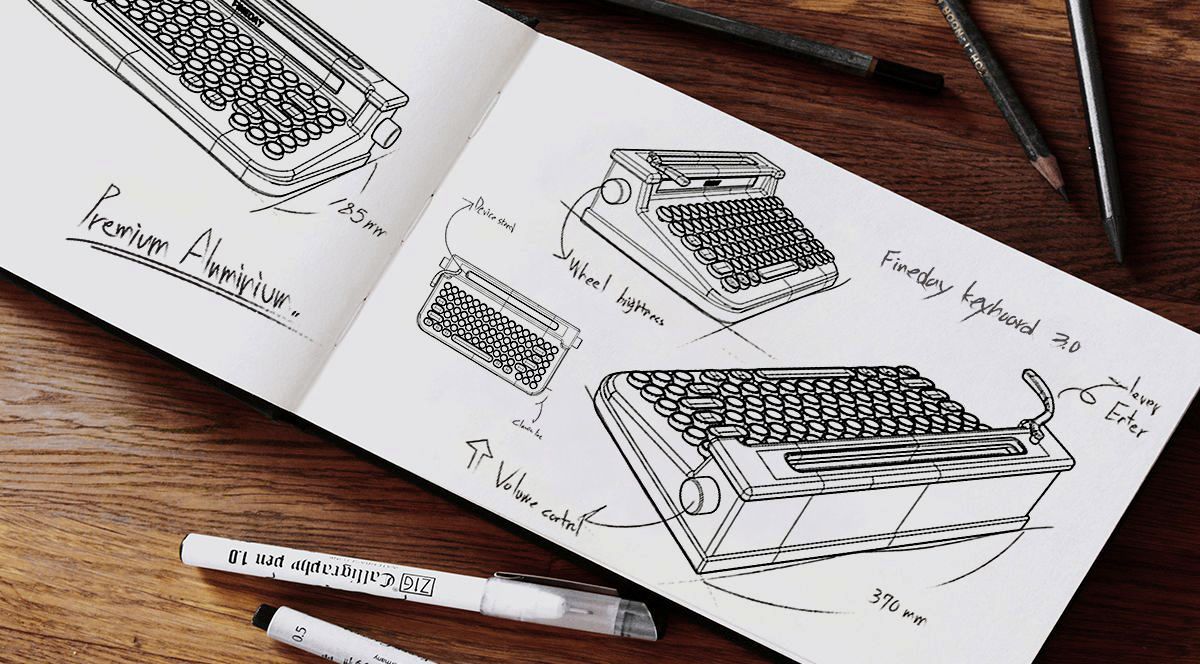 185 mm
Premium Aluminium..
Device stand
Wheel brightness
Fineday keyboard 3.0
Enter
Volume control
370 mm
ZIG
Calligraphy pen 1.0
0.5